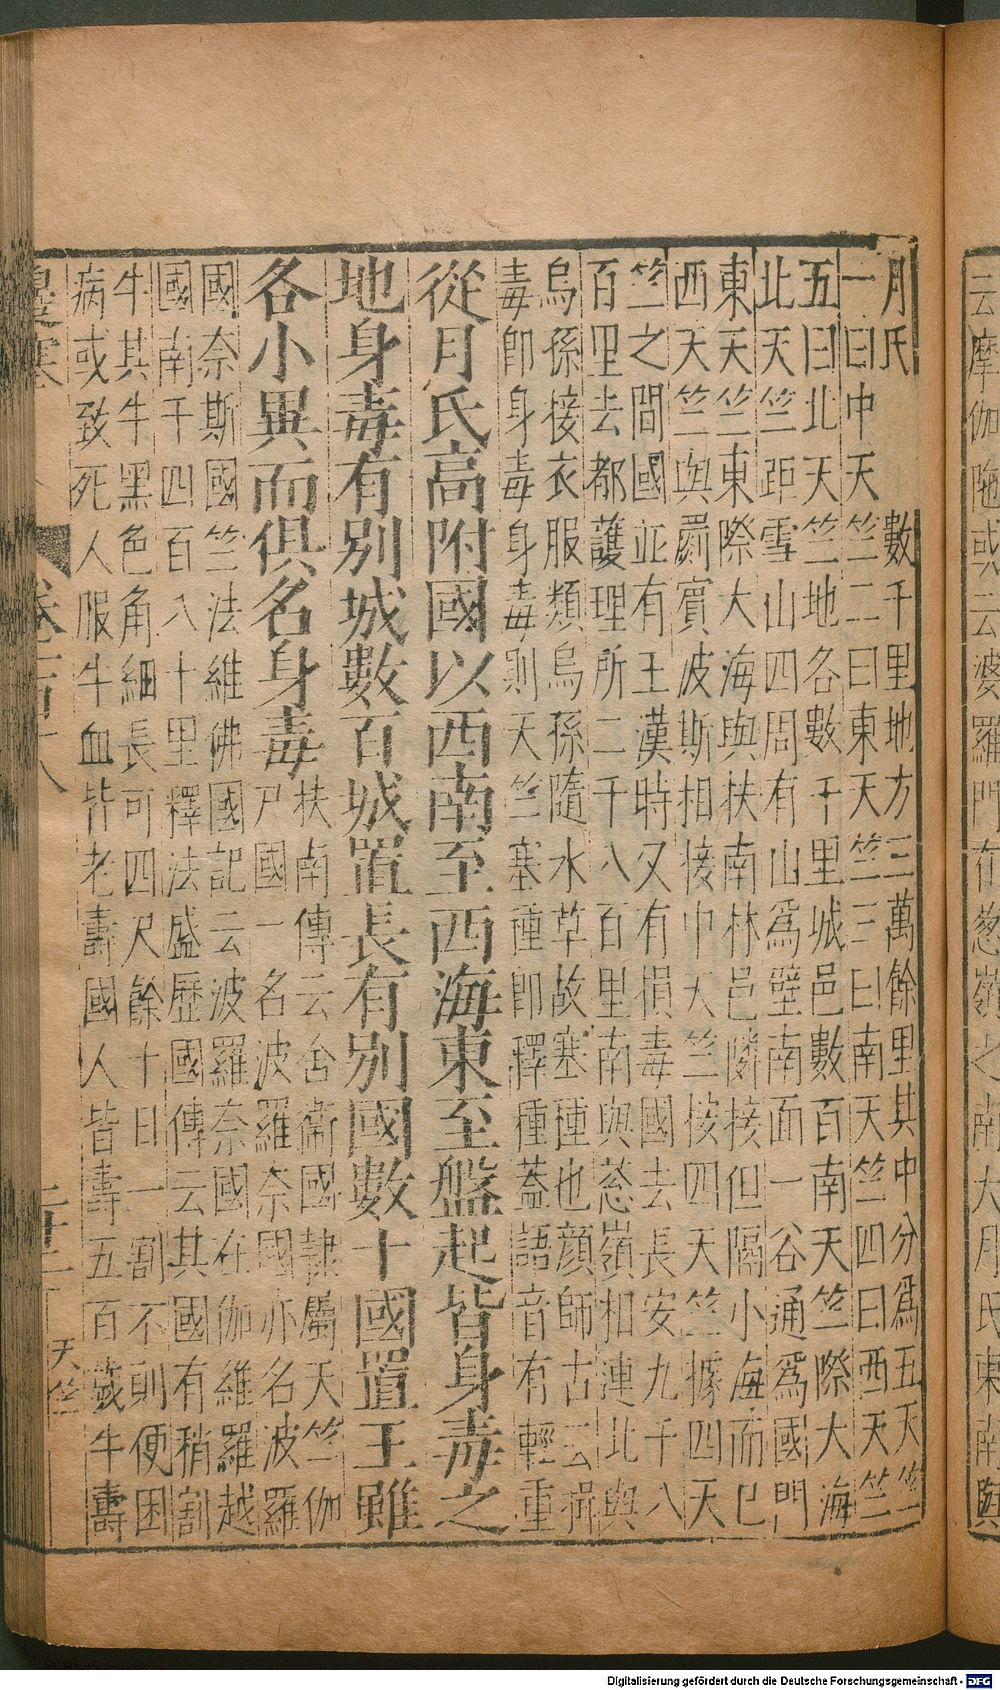 云摩伽陁或云婆羅門在葱嶺之南大月氏東南與
月氏 數千里地方三萬餘里其中分爲五天竺
一曰中天竺二曰東天竺三曰南天竺四曰西天竺
五曰北天竺地各數千里城邑數百南天竺際大海
北天竺距雪山四周有山爲壁南面一谷通爲國門
東天竺東際大海與扶南林邑隣接但隔小海而已
西天竺與罽賓波斯相接中天竺接四天竺據四天
竺之間國並有王漢時又有損毒國去長安九千八
百里去都護理所二千八百里南與葱嶺相連北與
烏孫接衣服類烏孫隨水草故塞種也顔師古云損
毒即身毒身毒則天竺塞種即釋種蓋語音有輕重
從月氏高附國以西南至西海東至盤起皆身毒之
地身毒有別城數百城置長有別國數十國置王雖
各小異而俱名身毒
扶南傳云舍衞國隷屬天竺伽
尸國一名波羅奈國亦名波羅
國奈斯國竺法維佛國記云波羅奈國在伽維羅越
國南千四百八十里釋法盛歷國傳云其國有稍割
牛其牛黑色角細長可四尺餘十日一割不則便困
病或致死人服牛血皆老壽國人皆壽五百歲牛壽
卷
天竺
Digitalisierung gefördert durch die Deutsche Forschungsgemeinschaft - DFG